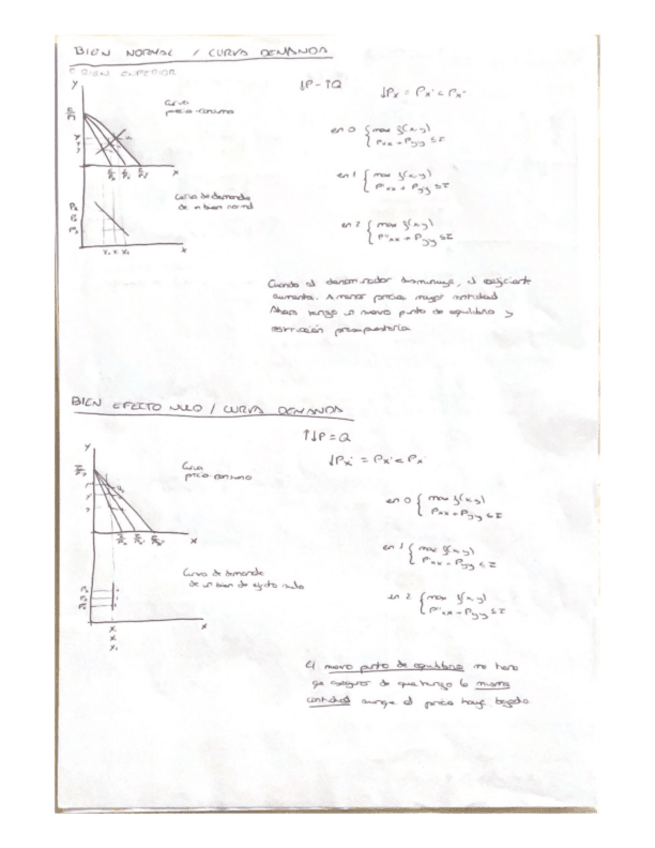 BIEN NORMAL / CURVA DEMANDA
BIEN SUPERIOR
y
↓P - ↑Q
↓Px = Px' < Px
Curva
precio-consumo
en 0 { max f(x,y)
Pxx + Pyy ≤ I
x
en 1 { max f(x,y)
P'xx + Pyy ≤ I
Curva de demanda
de un bien normal
en 2 { max f(x,y)
P''xx + Pyy ≤ I
x
Cuando el denominador disminuye, el cociente
aumenta. A menor precio mayor cantidad
Ahora tengo un nuevo punto de equilibrio y
restricción presupuestaria
BIEN EFECTO NULO / CURVA DEMANDA
↑↓P = Q
y
↓Px' = Px' < Px
Curva
precio-consumo
en 0 { max f(x,y)
Pxx + Pyy ≤ I
x
en 1 { max f(x,y)
P'xx + Pyy ≤ I
Curva de demanda
de un bien de efecto nulo
en 2 { max f(x,y)
P''xx + Pyy ≤ I
x
El nuevo punto de equilibrio me tiene
que asegurar de que tengo la misma
cantidad aunque el precio haya bajado